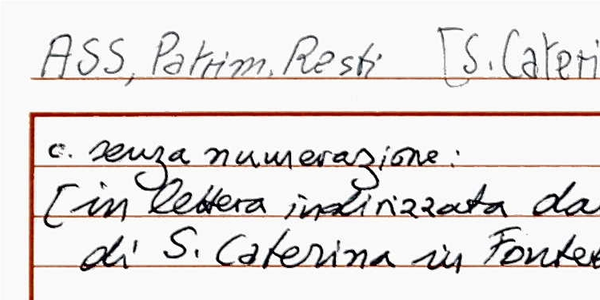 ASS, Patrim. Resti [S. Cateri
c. senza numerazione:
[in lettera indirizzata da
di S. Caterina in Fonte